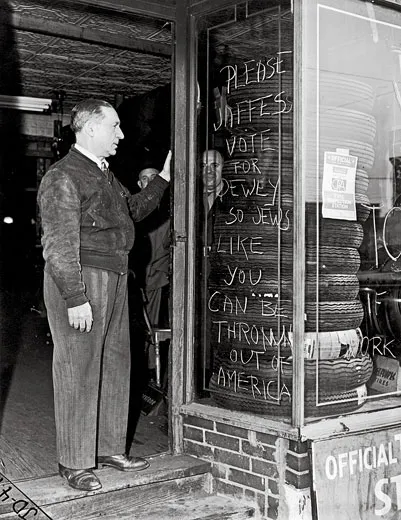 PLEASE
JAFFES
VOTE
FOR
DEWEY
SO JEWS
LIKE
YOU
CAN BE
THROWN
OUT OF
AMERICA
ORK
OFFICIAL
ST